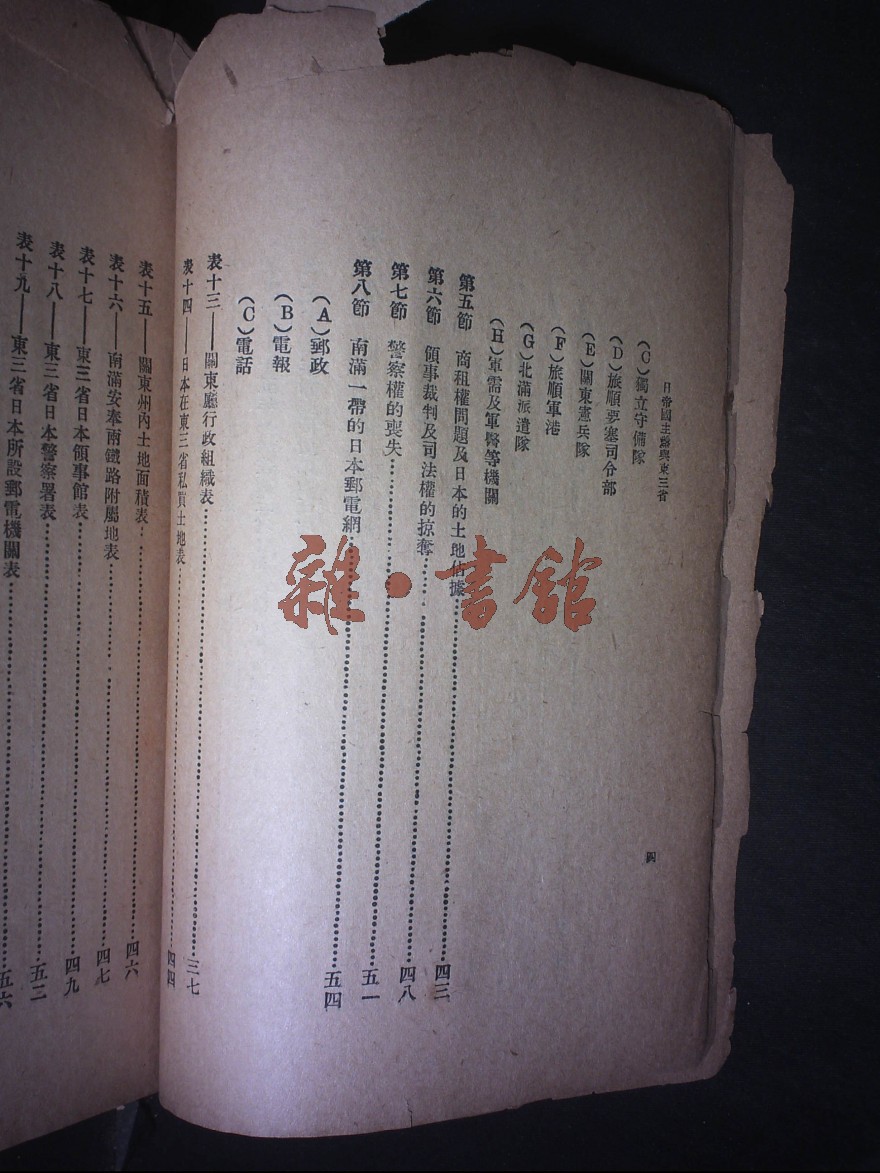 日帝國主義與東三省
四
(C)獨立守備隊
(D)旅順要塞司令部
(E)關東憲兵隊
(F)旅順軍港
(G)北滿派遣隊
(H)軍需及軍醫等機關
第五節 商租權問題及日本的土地佔據……四三
第六節 領事裁判及司法權的掠奪……四八
第七節 警察權的喪失……五一
第八節 南滿一帶的日本郵電網……五四
(A)郵政
(B)電報
(C)電話
表十三——關東廳行政組織表……三七
表十四——日本在東三省私買土地表……四四
表十五——關東州內土地面積表……四六
表十六——南滿安奉兩鐵路附屬地表……四七
表十七——東三省日本領事館表……四九
表十八——東三省日本警察署表……五三
表十九——東三省日本所設郵電機關表……五六
雜·書館